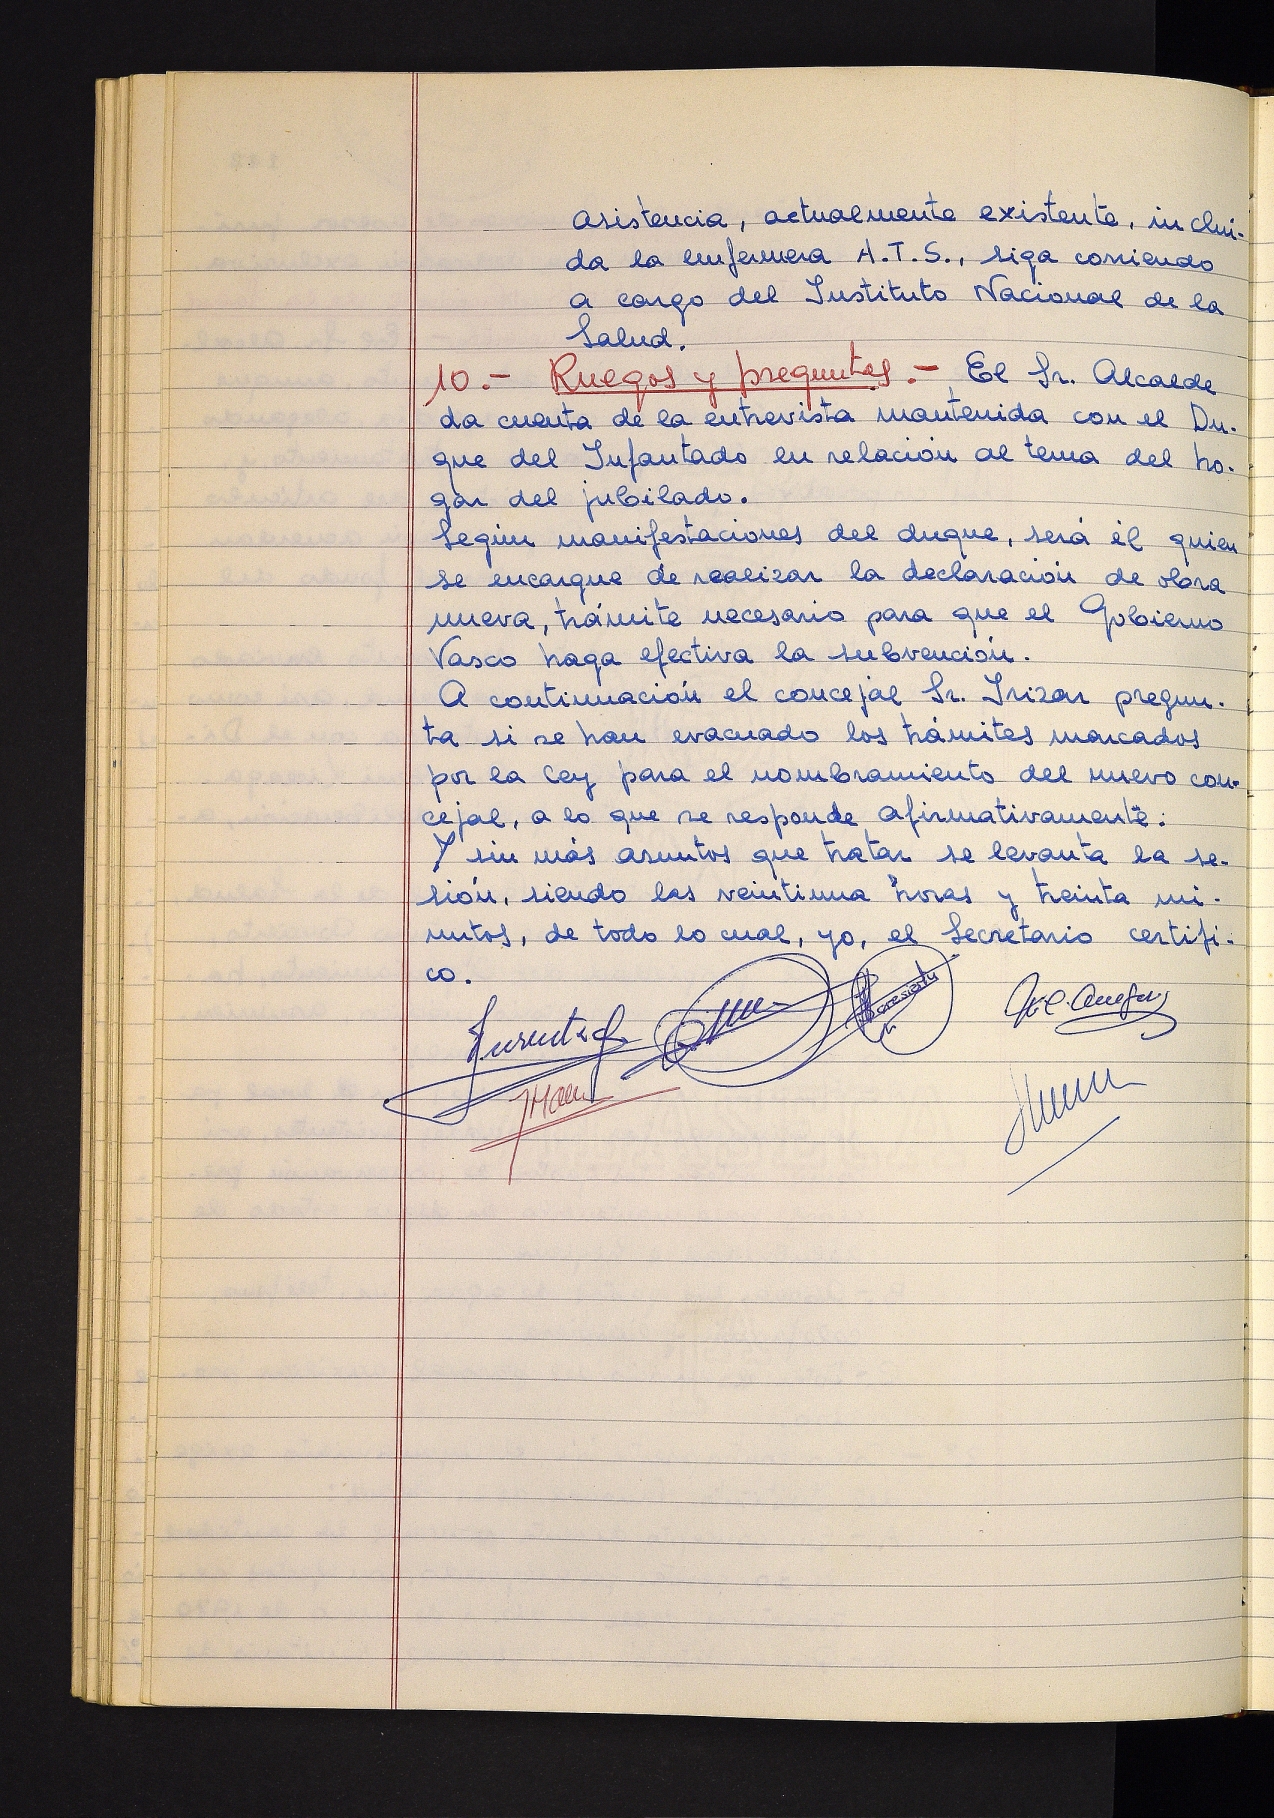 asistencia, actualmente existente, inclui-
da la enfermera A.T.S., siga corriendo
a cargo del Instituto Nacional de la
Salud.
10.- Ruegos y preguntas.- El Sr. Alcalde
da cuenta de la entrevista mantenida con el Du-
que del Infantado en relación al tema del ho-
gar del jubilado.
Según manifestaciones del duque, será él quien
se encargue de realizar la declaración de obra
nueva, trámite necesario para que el Gobierno
Vasco haga efectiva la subvención.
A continuación el concejal Sr. Irizar pregun-
ta si se han evacuado los trámites marcados
por la ley para el nombramiento del nuevo con-
cejal, a lo que se responde afirmativamente.
Y sin más asuntos que tratar se levanta la se-
sión, siendo las veintiuna horas y treinta mi-
nutos, de todo lo cual, yo, el Secretario certifi-
co.